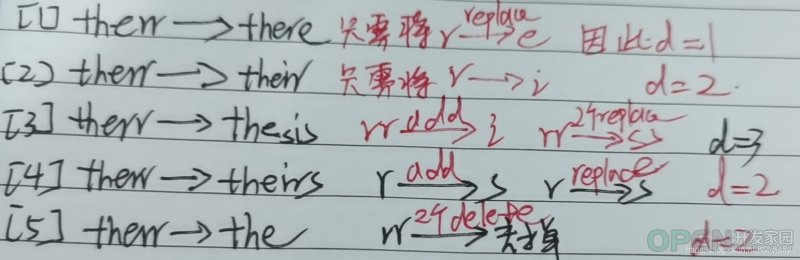 [1] therr → there 只需将 r replace→ e 因此d=1
(2) therr → their 只需将 r → i d=2.
[3] therr → thesis rr add→ i rr 2个replace→ ss d=3
[4] therr → theirs r add→ s r replace→ s d=2
[5] therr → the rr 2个delete→ 去掉 d=2
开发家园